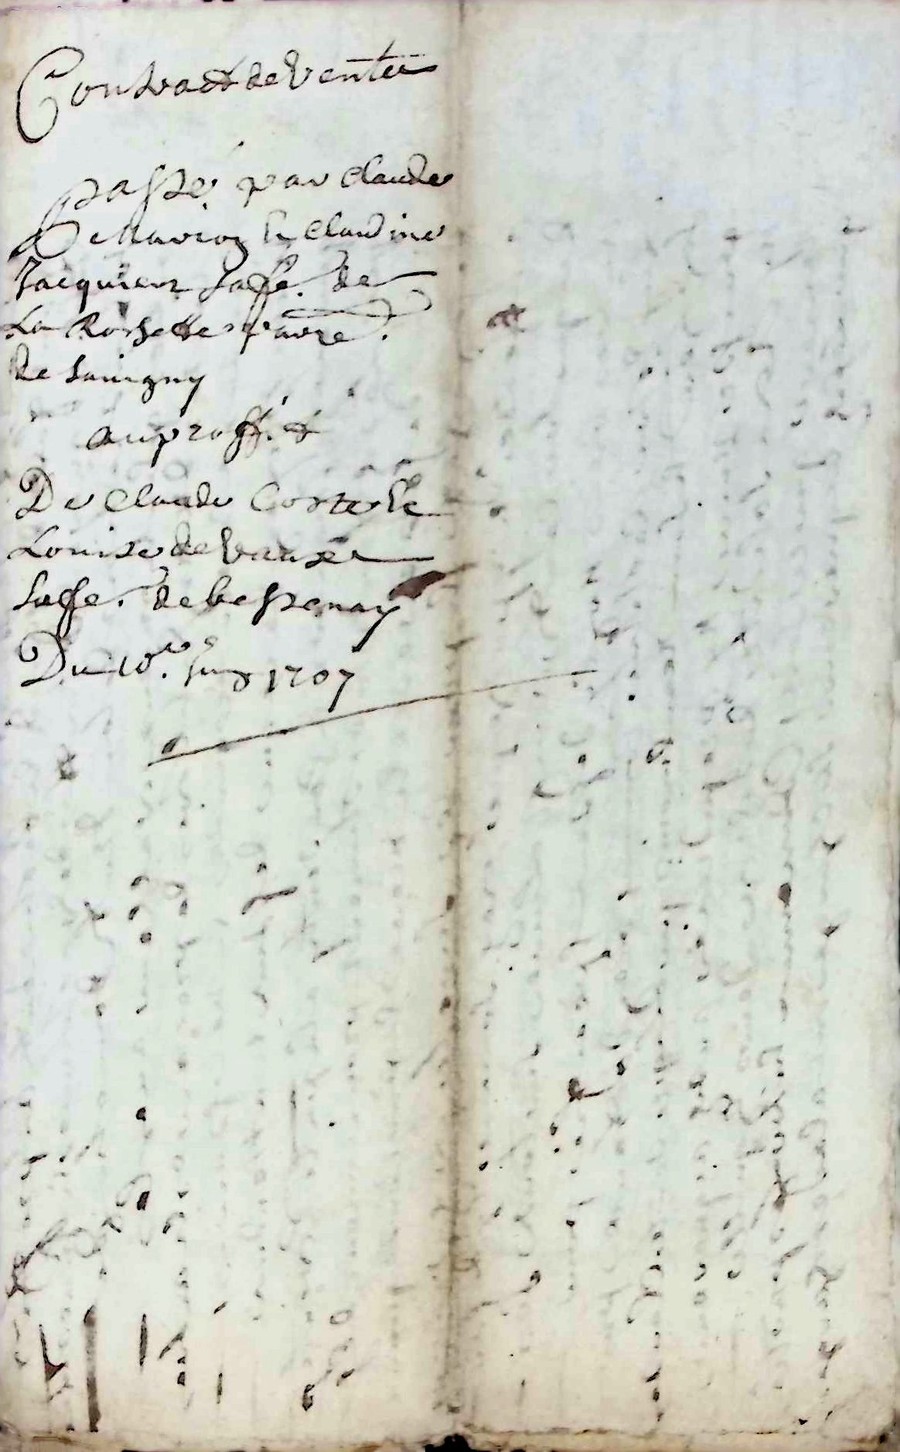 Contract de Vente
passé par Claude
De Marion Et Claudine
Jacquieur sa ffe. de
La Rossette parre.
de Savigny
au proffit
De Claude Coste Et
Louise de Vaux
sa ffe. de bessenay
Du 10e. Juing 1707